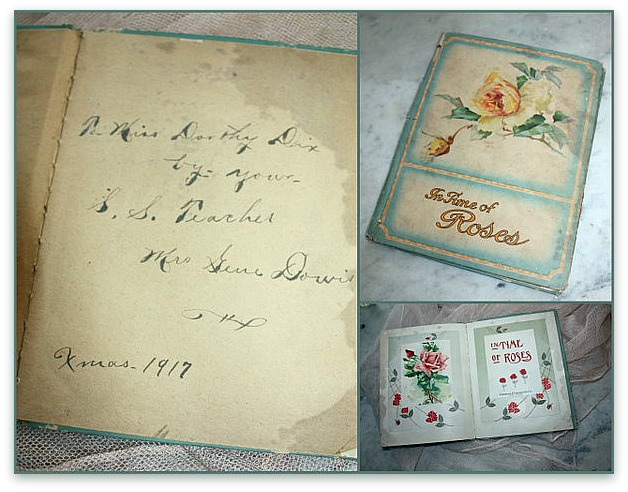 To Miss Dorothy Dix
by- your-
S. S. Teacher
Mrs Gene Dowis
Xmas-1917
In Time of
Roses
IN TIME
OF ROSES